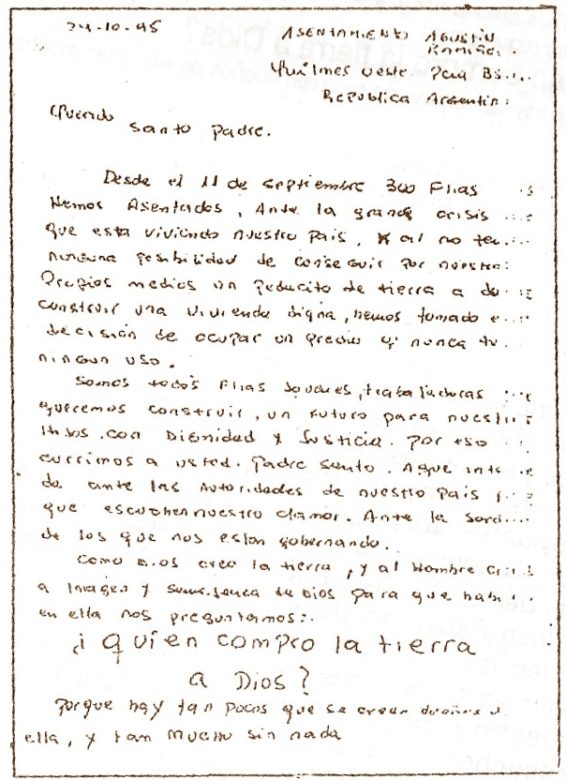 24-10-95
ASENTAMIENTO AGUSTIN
RAMIRE
Quilmes oeste. Pcia Bs.
Republica Argentin
Querido
Santo Padre.
Desde el 11 de septiembre 300 Flias
Hemos Asentados, Ante la grande crisis
que esta viviendo nuestro Pais, y al no te
ninguna posibilidad de conseguir por nuestro
Propios medios un Pedacito de tierra a do
construir una vivienda digna, hemos tomado
decisión de ocupar un predio q' nunca tu
ningun uso.
Somos todos Flias Jovenes, trabajadoras
queremos construir, un futuro para nuestr
Hijos, con Dignidad y Justicia. Por eso
currimos a usted. Padre Santo. A que inte
da ante las Autoridades de nuestro Pais p
que escuchen nuestro clamor. Ante la sord
de los que nos estan gobernando.
Como Dios creo la tierra, y al Hombre
a Imagen y Semejanza de Dios para que habi
en ella nos preguntamos:
¿Quien compro la tierra
a Dios?
Porque hay tan pocos que se creen dueños
ella, y tan mucho sin nada